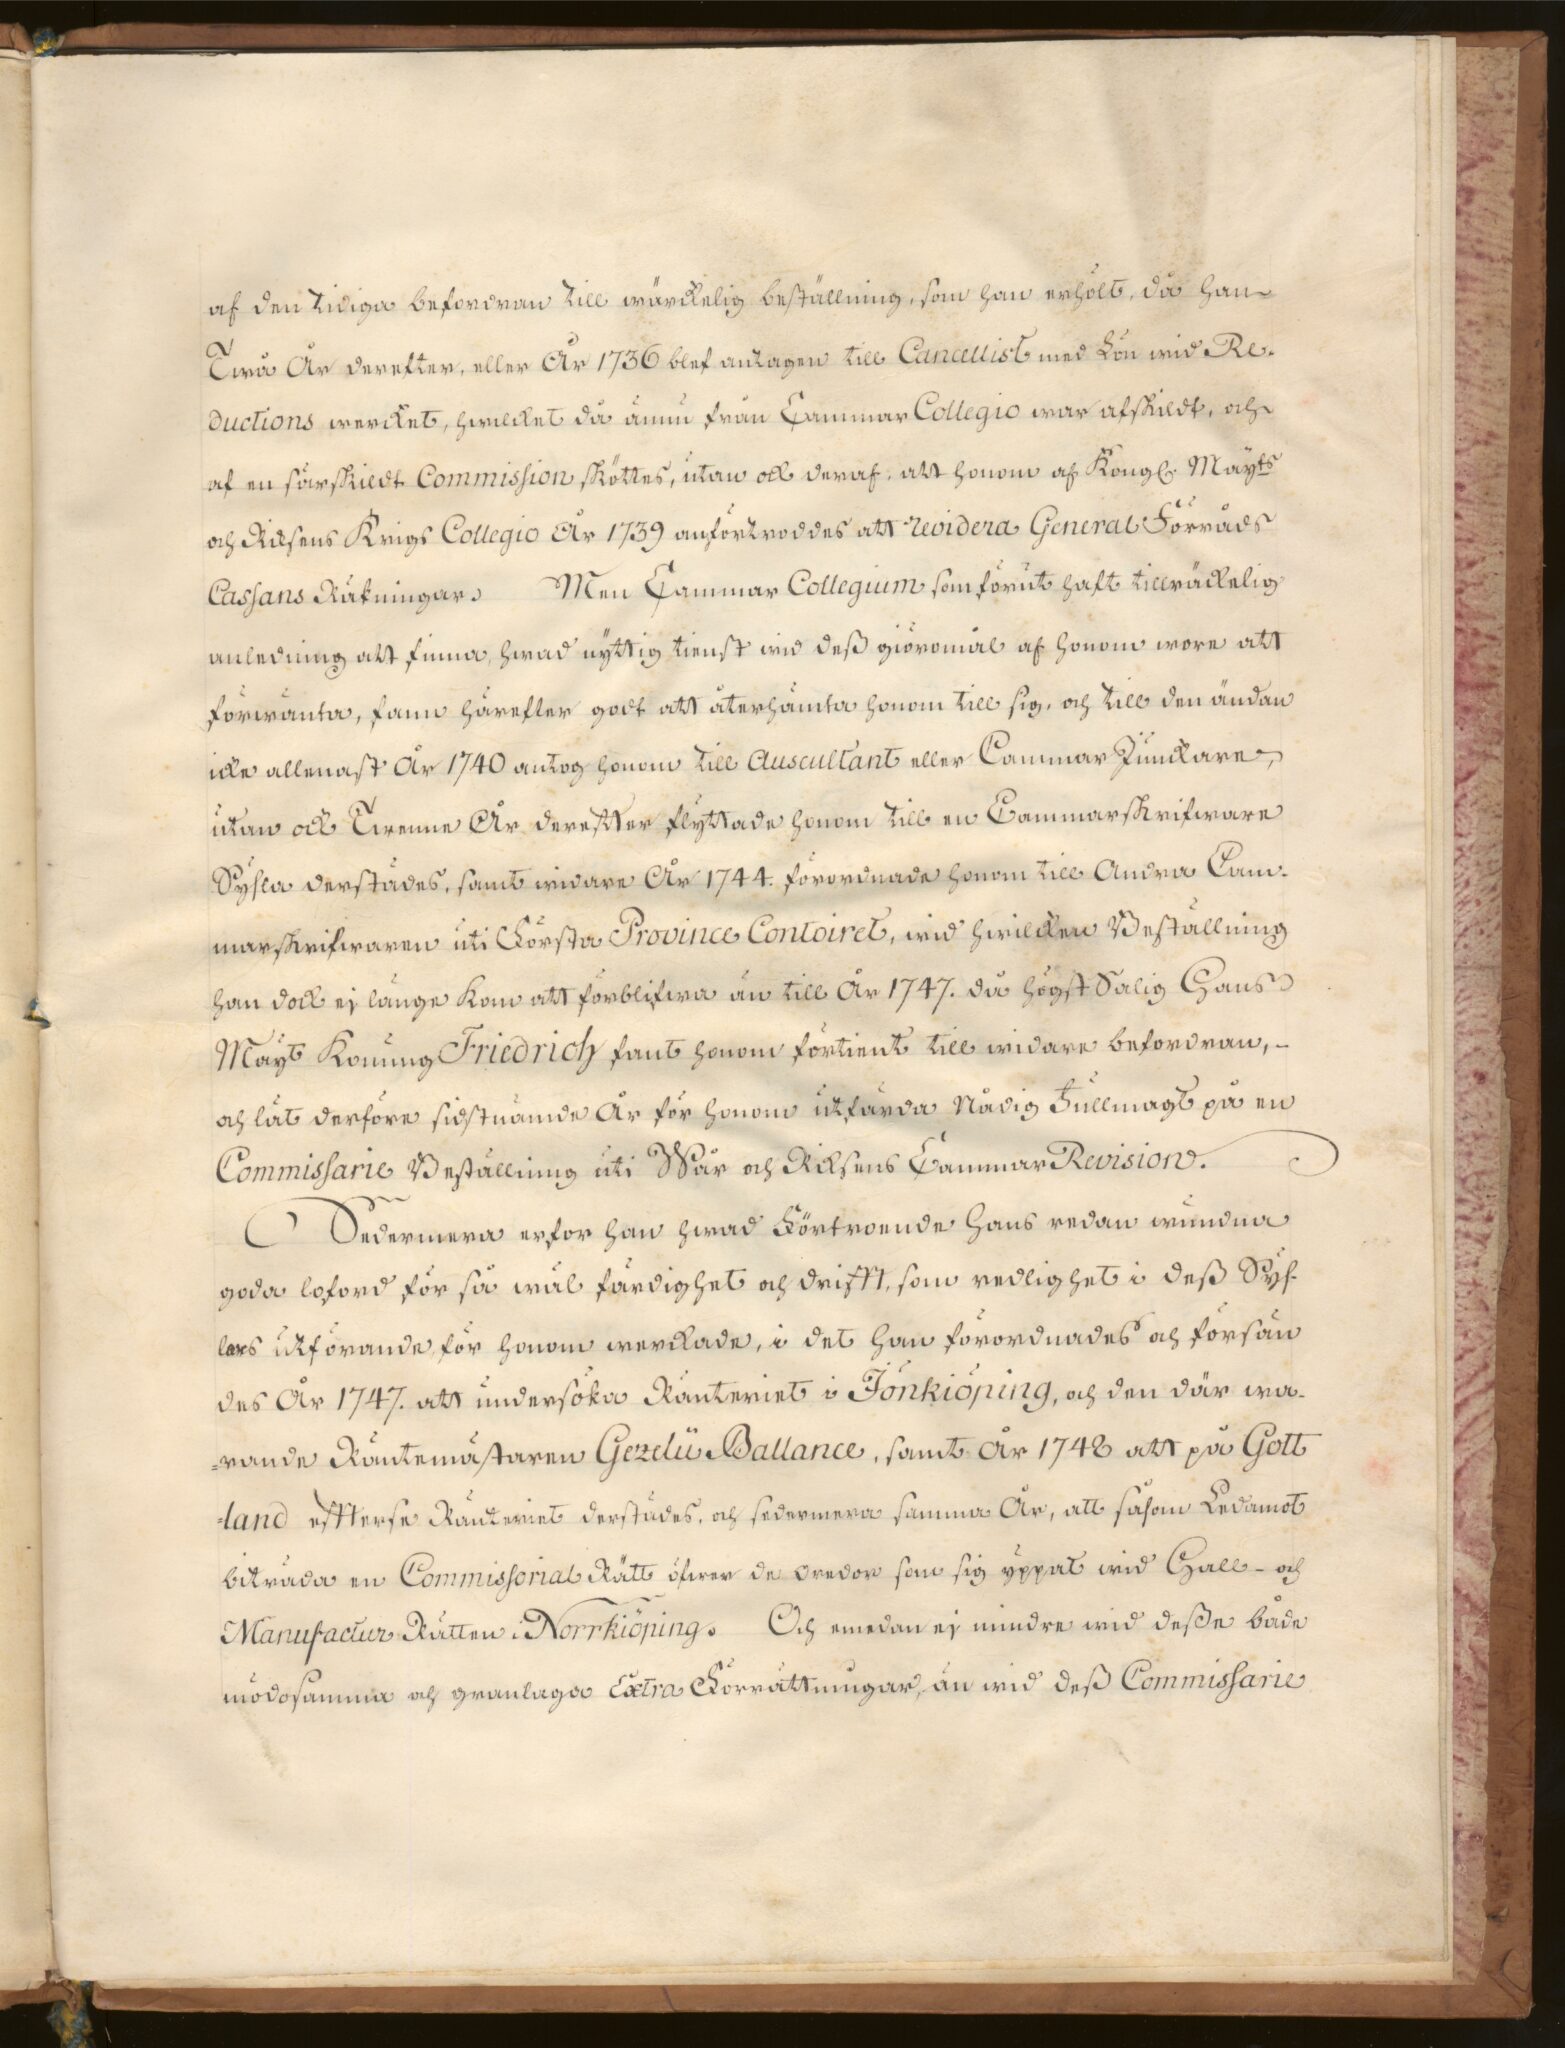 af den tidiga befordran till wärckelig beställning, som han erhölt, då han
Twå År derefter, eller År 1736 blef antagen till Cancellist med Lön wid Re-
ductions wercket, hwilcket då ännu från Cammar Collegio war afskildt, och
af en särskildt Commission sköttes, utan ock deraf, att honom af Kongl. Maÿts
och Riksens Krigs Collegio År 1739 anförtroddes att revidera General Förråds
Cassans Räkningar. Men Cammar Collegium som förut haft tillräckelig
anledning att finna, hwad nÿttig tienst wid deß giöromål af honom wore att
förwänta, fann härefter godt att återhämta honom till sig, och till den ändan
icke allenast År 1740 antog honom till Auscultant eller Cammar Junckare,
utan ock Twenne År derefter flÿttade honom till en Cammarskrifware
Sÿsla derstädes, samt widare År 1744. förordnade honom till Andra Cam-
marskrifwaren uti Första Province Contoiret, wid hwilcken Beställning
han dock ej länge kom att förblifwa än till År 1747. då högst Salig Hans
Maÿt Konung Friedrich fant honom förtient till widare befordran,-
och lät derföre sidstnämde År för honom utfärda Nådig Fullmagt på en
Commissarie Beställning uti Wår och Riksens Cammar Revision.
Sedermera erfor han hwad Förtroende Hans redan wundna
goda loford för så wäl färdighet och drifft, som redlighet i deß Sÿß-
lors utförande för honom werckade, i det han förordnades och försän
des År 1747. att undersöka Ränteriet i Jönkiöping, och den där wa-
=rande Räntemästaren Gezelii Ballance, samt År 1748 att på Gott
=land effterse Ränteriet derstädes, och sedermera samma År, att såsom Ledamot
biträda en Commissorial Rätt öfwer de oredor som sig ÿppat wid Hall- och
Manufactur Rätten i Norrkiöping. Och emedan ej mindre wid deße både
mödosamma och granlaga Extra Förrättningar, än wid deß Commissarie